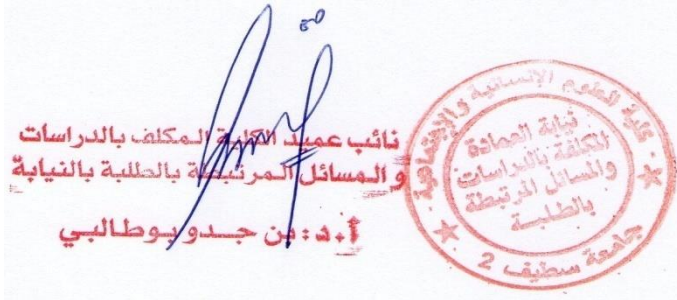 نائب عميد الكلية المكلف بالدراسات
و المسائل المرتبطة بالطلبة بالنيابة
أ.د: بن جدو بوطالبي
كلية العلوم الإنسانية و الإجتماعية
نيابة العمادة
المكلفة بالدراسات
والمسائل المرتبطة
بالطلبة
جامعة سطيف 2